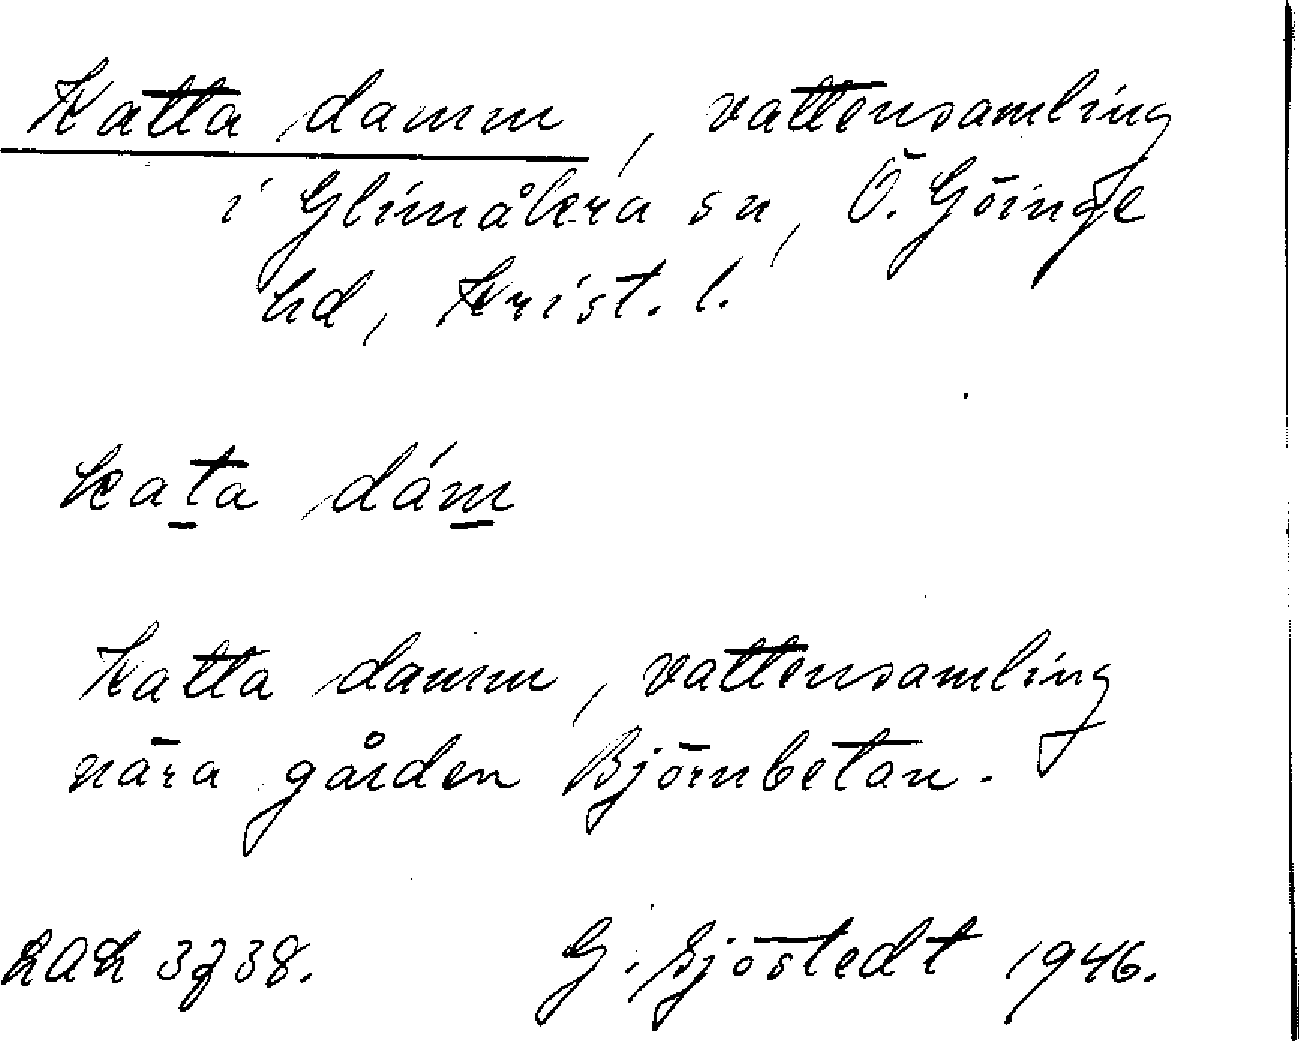 Katta damm, vattensamling
i Glimåkra sn, Ö. Göinge
hd, Krist. l.
kat̲a dám̲
Katta damm, vattensamling
nära gården Björnbetan.
G. Sjöstedt 1946.